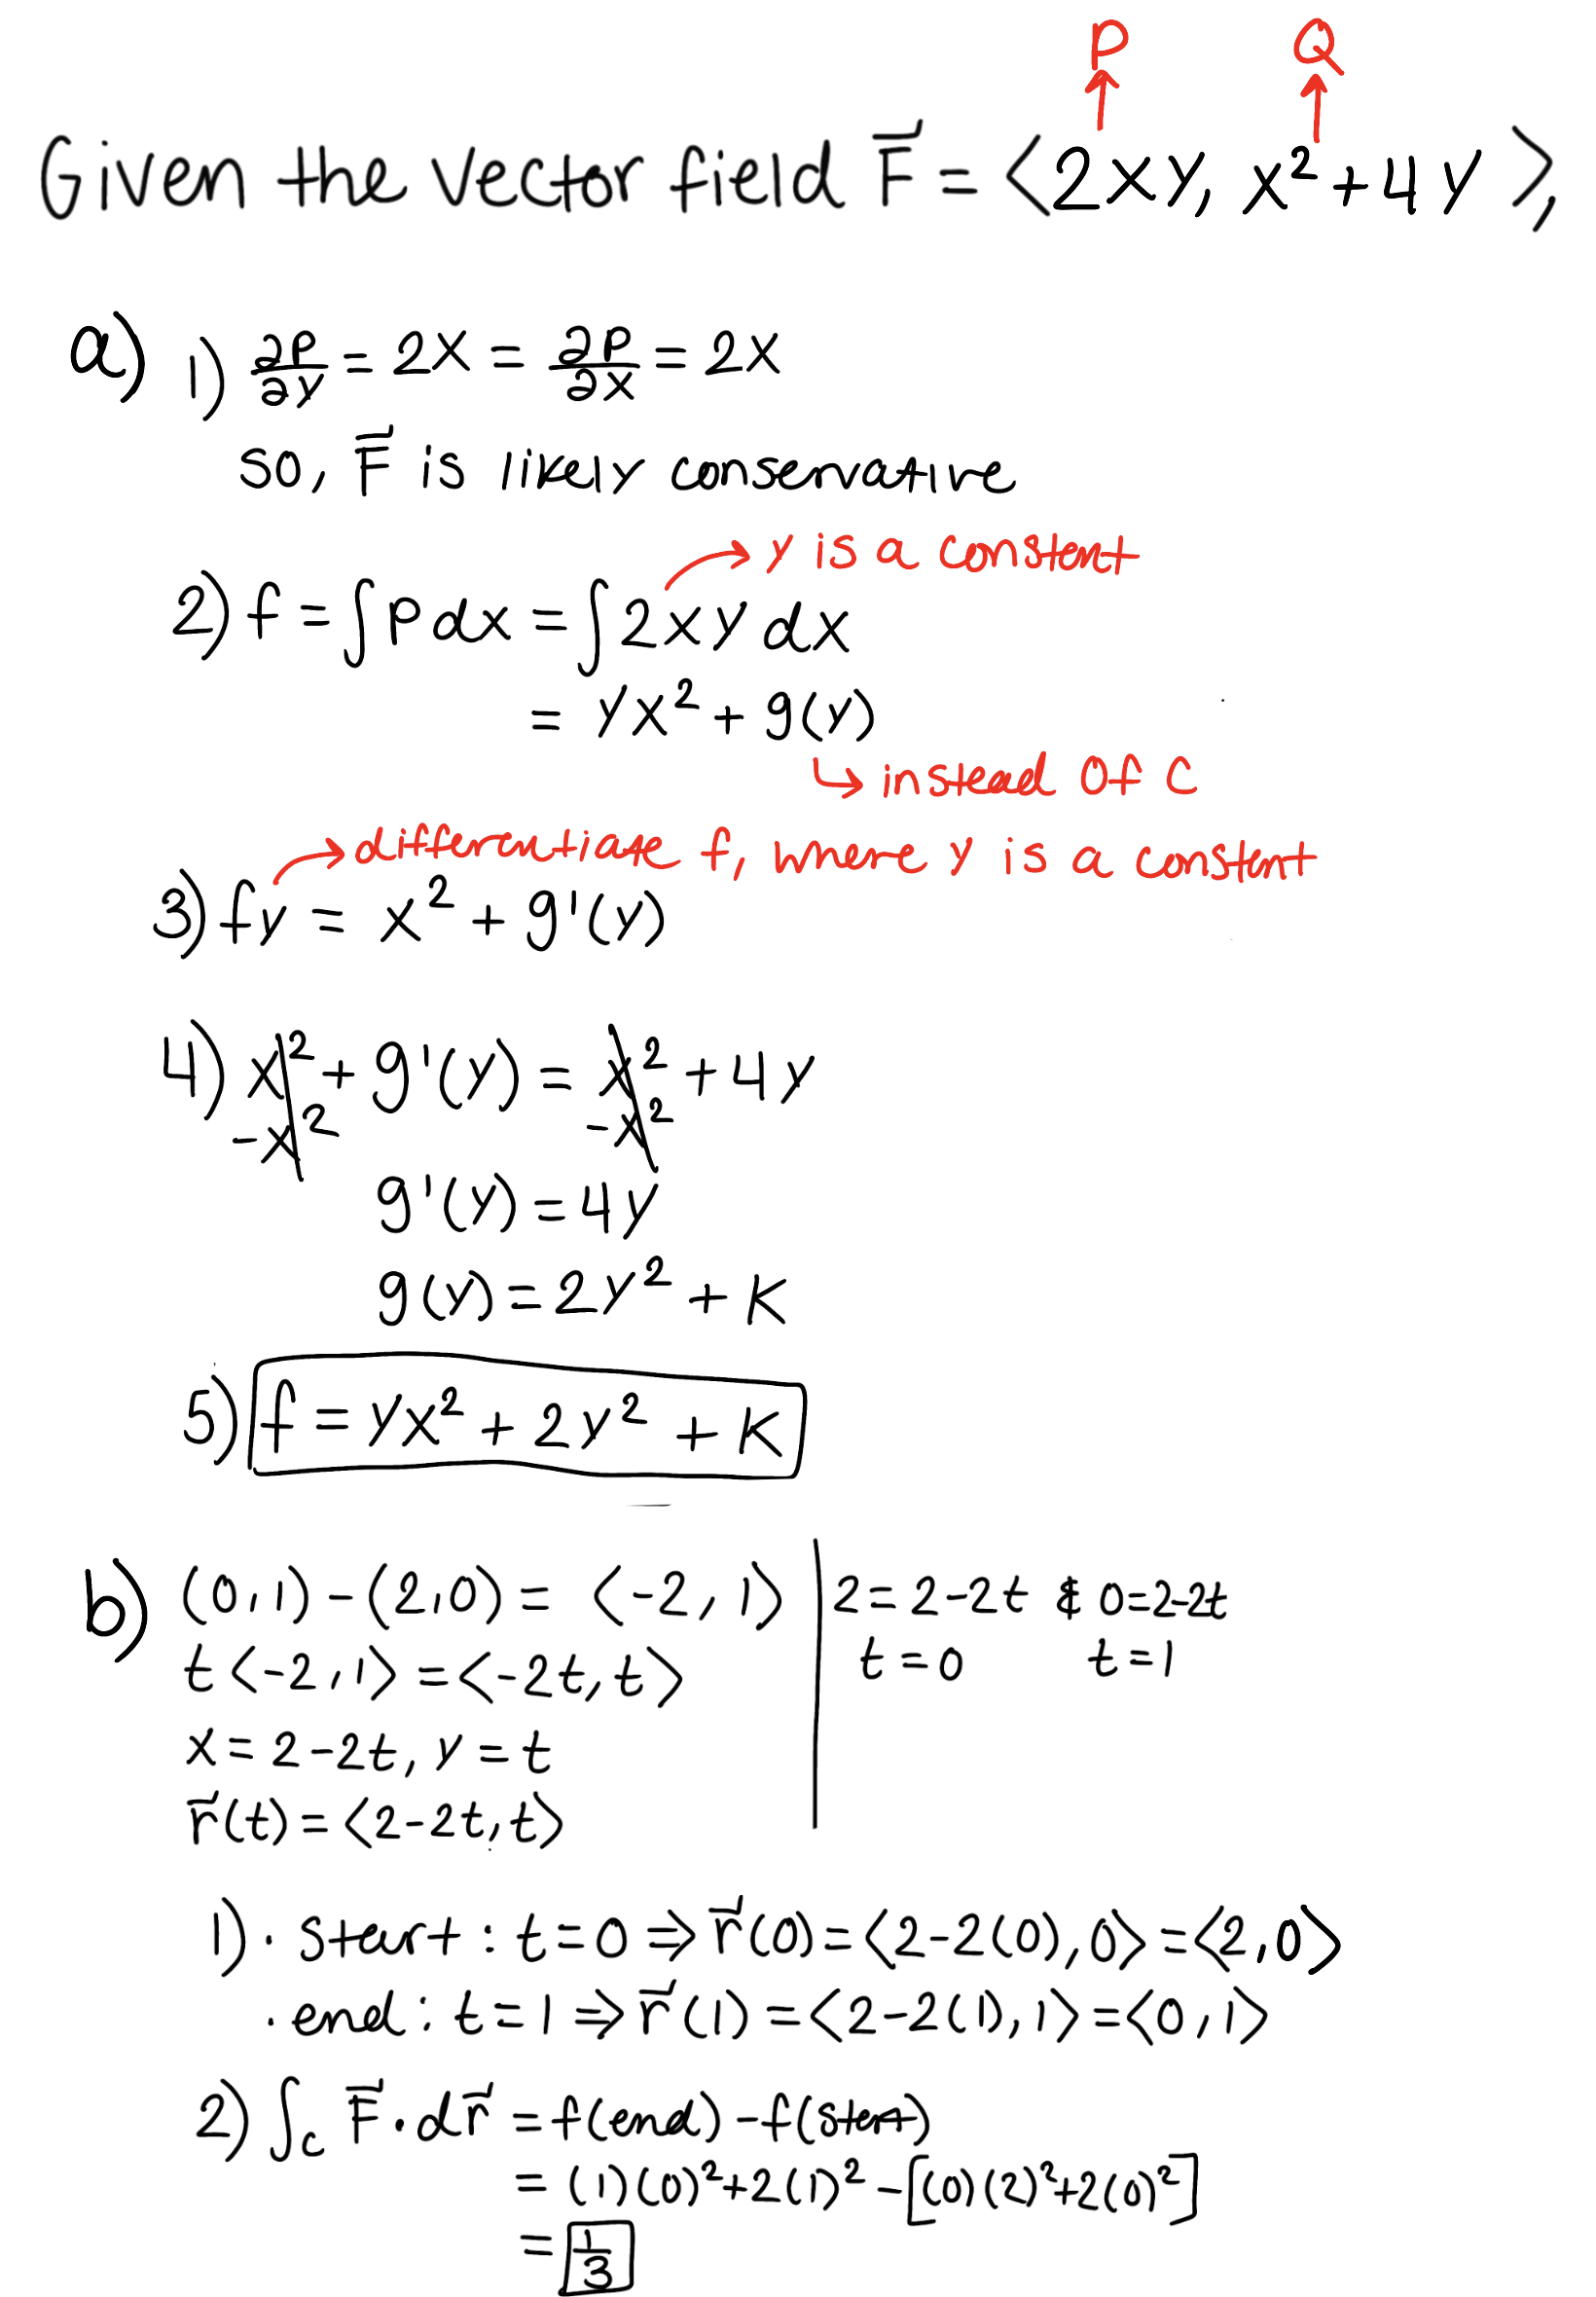 P Q
Given the vector field F⃗ = ⟨2xy, x² + 4y⟩,
a) 1) ∂P/∂y = 2x = ∂P/∂x = 2x
so, F⃗ is likely conservative
y is a constant
2) f = ∫P dx = ∫2xy dx
= yx² + g(y)
instead of C
differentiate f, where y is a constant
3) fy = x² + g'(y)
4) x² + g'(y) = x² + 4y
-x² -x²
g'(y) = 4y
g(y) = 2y² + K
5) f = yx² + 2y² + K
b) (0,1) - (2,0) = ⟨-2, 1⟩ | 2 = 2-2t & 0=2-2t
t⟨-2, 1⟩ = ⟨-2t, t⟩ | t = 0 t = 1
x = 2-2t, y = t
r⃗(t) = ⟨2-2t, t⟩
1) · start: t=0 ⇒ r⃗(0) = ⟨2-2(0), 0⟩ = ⟨2,0⟩
· end: t=1 ⇒ r⃗(1) = ⟨2-2(1), 1⟩ = ⟨0,1⟩
2) ∫c F⃗ · dr⃗ = f(end) - f(start)
= (1)(0)² + 2(1)² - [(0)(2)² + 2(0)²]
= 1/3